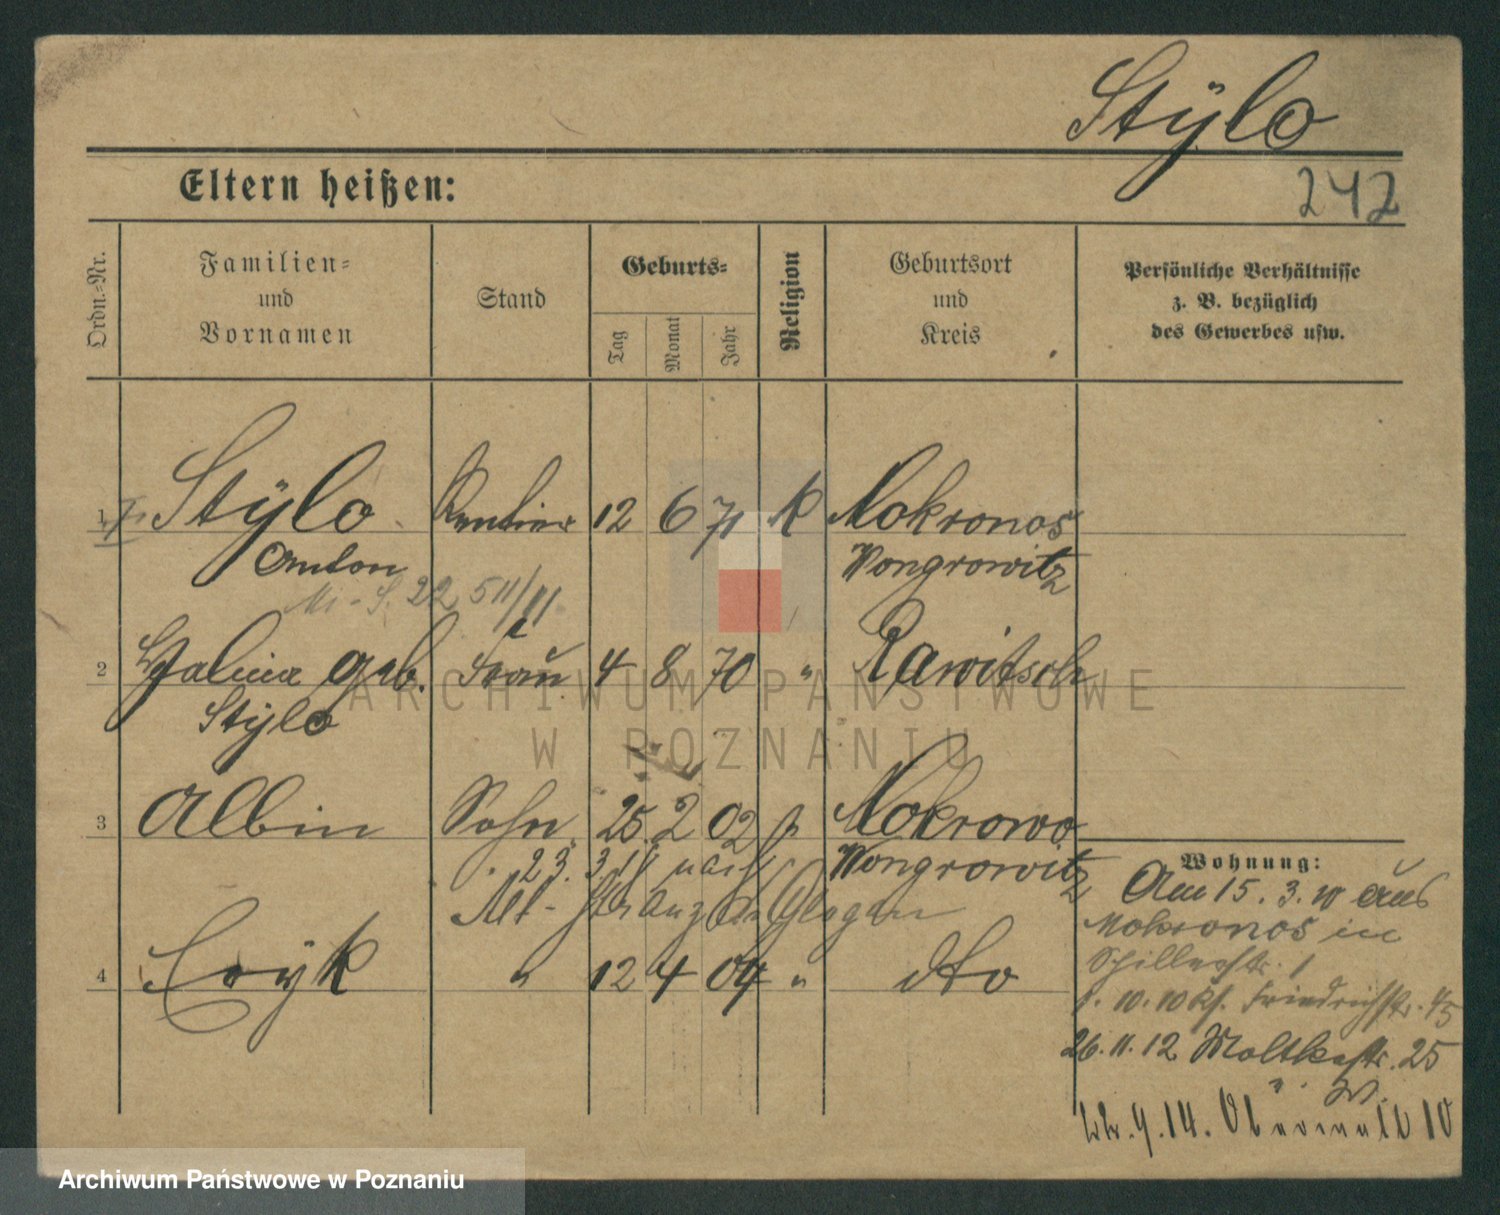 Stÿlo
Eltern heißen:
242
Ordn.-Nr.
Familien-
und
Vornamen
Stand
Geburts-
Tag
Monat
Jahr
Religion
Geburtsort
und
Kreis
Persönliche Verhältnisse
z. B. bezüglich
des Gewerbes usw.
1 Stÿlo Rentier 12 6 71 K Mokronos
Anton Wongrowitz
22 511/11
2 Halina geb. Frau 4 8 70 " Rawitsch
Stÿlo
3 Albin Sohn 25 2 02 Mokrowo
23. 3 11 nach Wongrowitz
Alt- Glogau
4 Eryk " 12 4 04 " dto
Wohnung:
Am 15. 3. 10 aus
Mokronos in
Schillerstr. 1
1. 10. 10 Kf. Friedrichstr. 45
26. 11. 12 Moltkestr. 25
22. 9. 14. Oberwall 10
ARCHIWUM PAŃSTWOWE
W POZNANIU
Archiwum Państwowe w Poznaniu